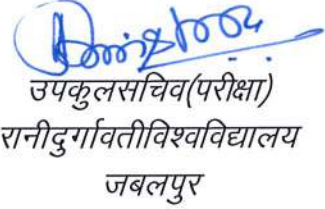 उपकुलसचिव(परीक्षा)
रानीदुर्गावतीविश्वविद्यालय
जबलपुर